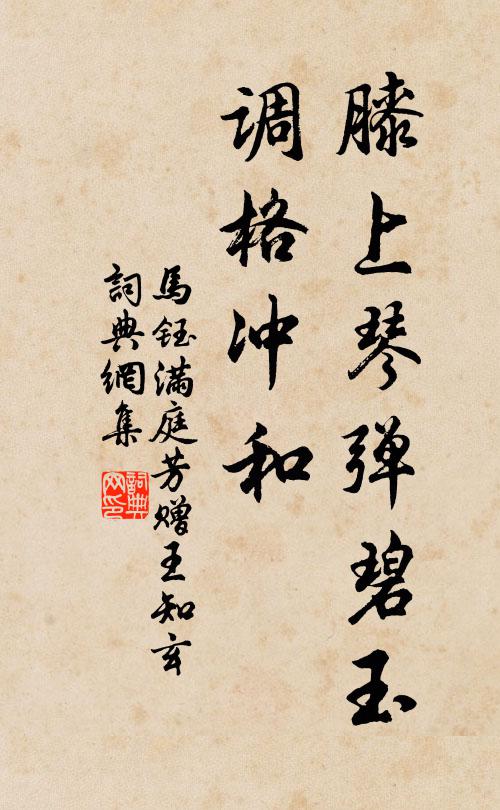 膝上琴弹碧玉
调格冲和
馬鈺满庭芳赠王知玄
詞典網集
詞典
网印